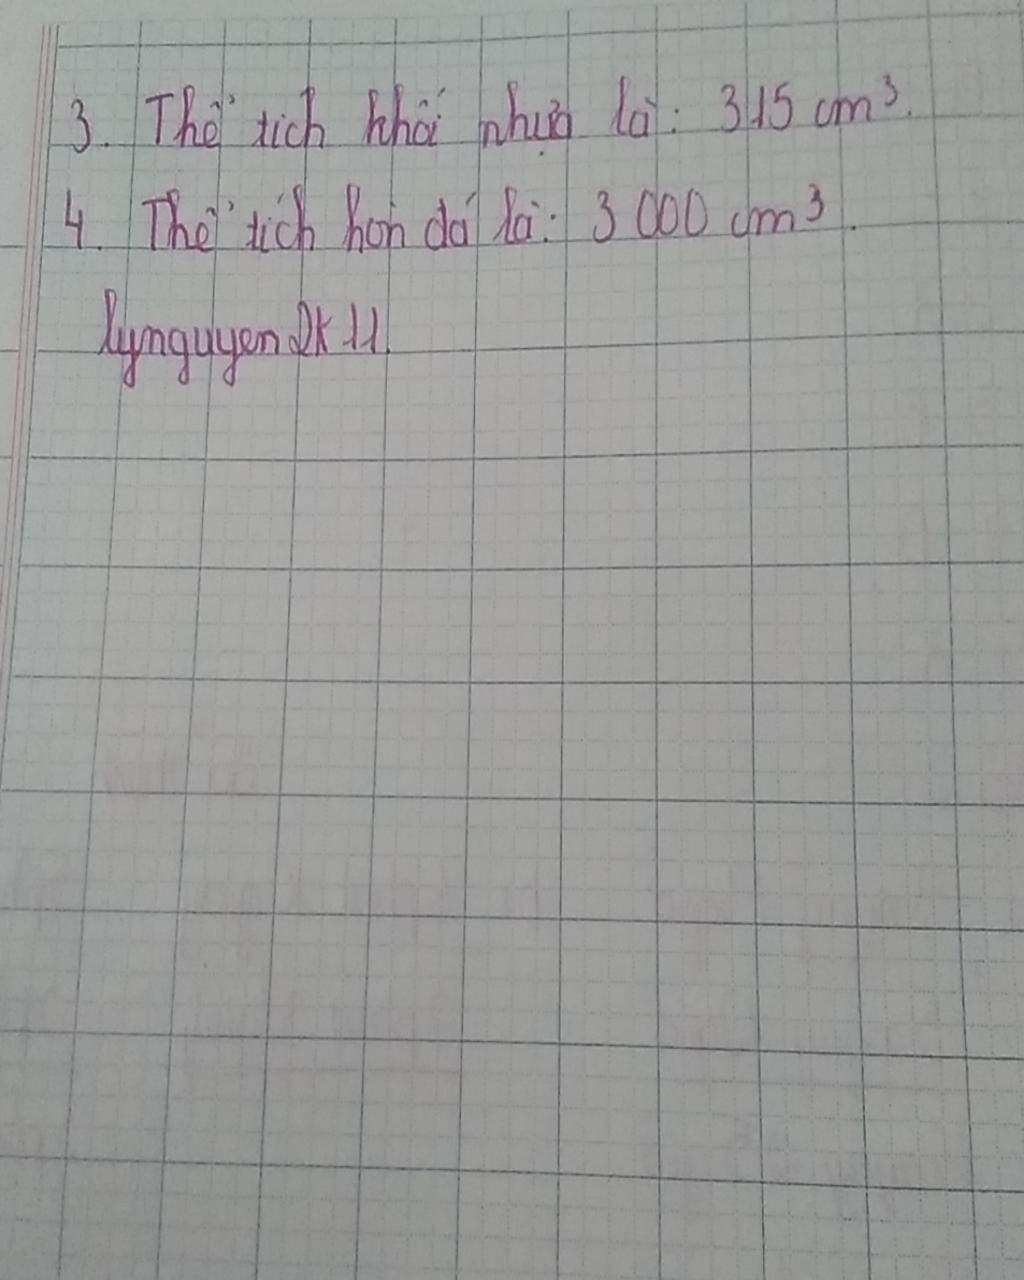 3. Thể tích khối nhựa là: 315 cm³.
4. Thể tích hòn đá là: 3 000 cm³.
lynguyen2k11